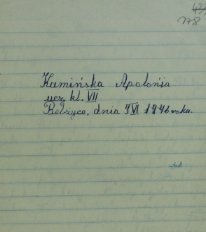 178
Kamińska Apolonia
ucz. kl. VII
dnia 7 VI 1946 roku